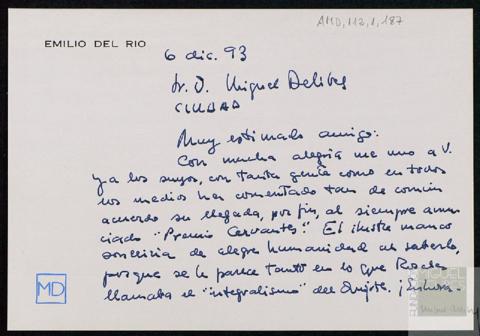 AMD,112,1,187
EMILIO DEL RIO
6 dic. 93
Sr. D. Miguel Delibes
CIUDAD
Muy estimado amigo:
Con mucha alegría me uno a V.
y a los suyos, con tanta gente como en todos
los medios han comentado tan de común
acuerdo su llegada, por fin, al siempre anun
ciado "Premio Cervantes". El ilustre manco
sonreiría de alegre humanidad al saberlo,
porque se le parece tanto en lo que
llamaba el "integralismo" del Quijote. ¡Enhora-
MD
MIGUEL